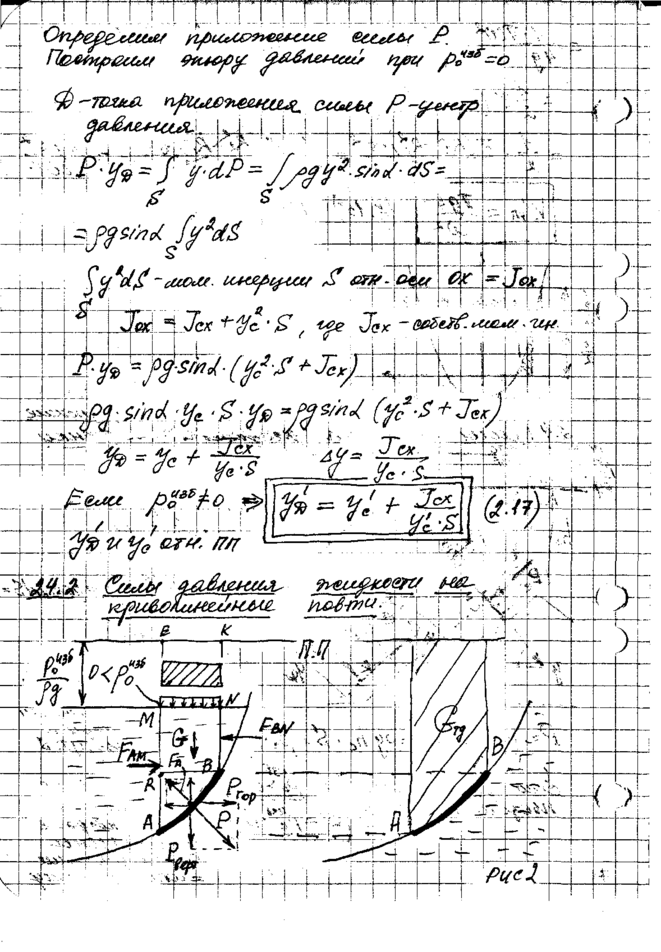 Определим приложение силы P.
Построим эпюру давлений при p₀ᵘᶻᵟ=0
D-точка приложения силы P-центр
давления
P·y_D = ∫_S y·dP = ∫_S ρgy²·sinα·dS=
=ρgsinα ∫_S y²dS
∫_S y²dS-мом. инерции S отн. оси ox = Jox
Jox = Jcx + y_c²·S, где Jcx-собств. мом. ин.
P·y_D = ρg·sinα·(y_c²·S + Jcx)
ρg·sinα·y_c·S·y_D = ρgsinα (y_c²·S + Jcx)
y_D = y_c + Jcx/(y_c·S) Δy = Jcx/(y_c·S)
Если p₀ᵘᶻᵟ≠0 ⇒ y'_D = y'_c + Jcx/(y'_c·S) (2.17)
y'_D и y'_c отн. ПП
2.4.2 Силы давления жидкости на
криволинейные пов-ти.
E K П.П
p₀ᵘᶻᵟ/ρg 0<p₀ᵘᶻᵟ
M N
G F_BN G_тд
F_AM B B
R Pгор
A P A
Pверт
Рис 2